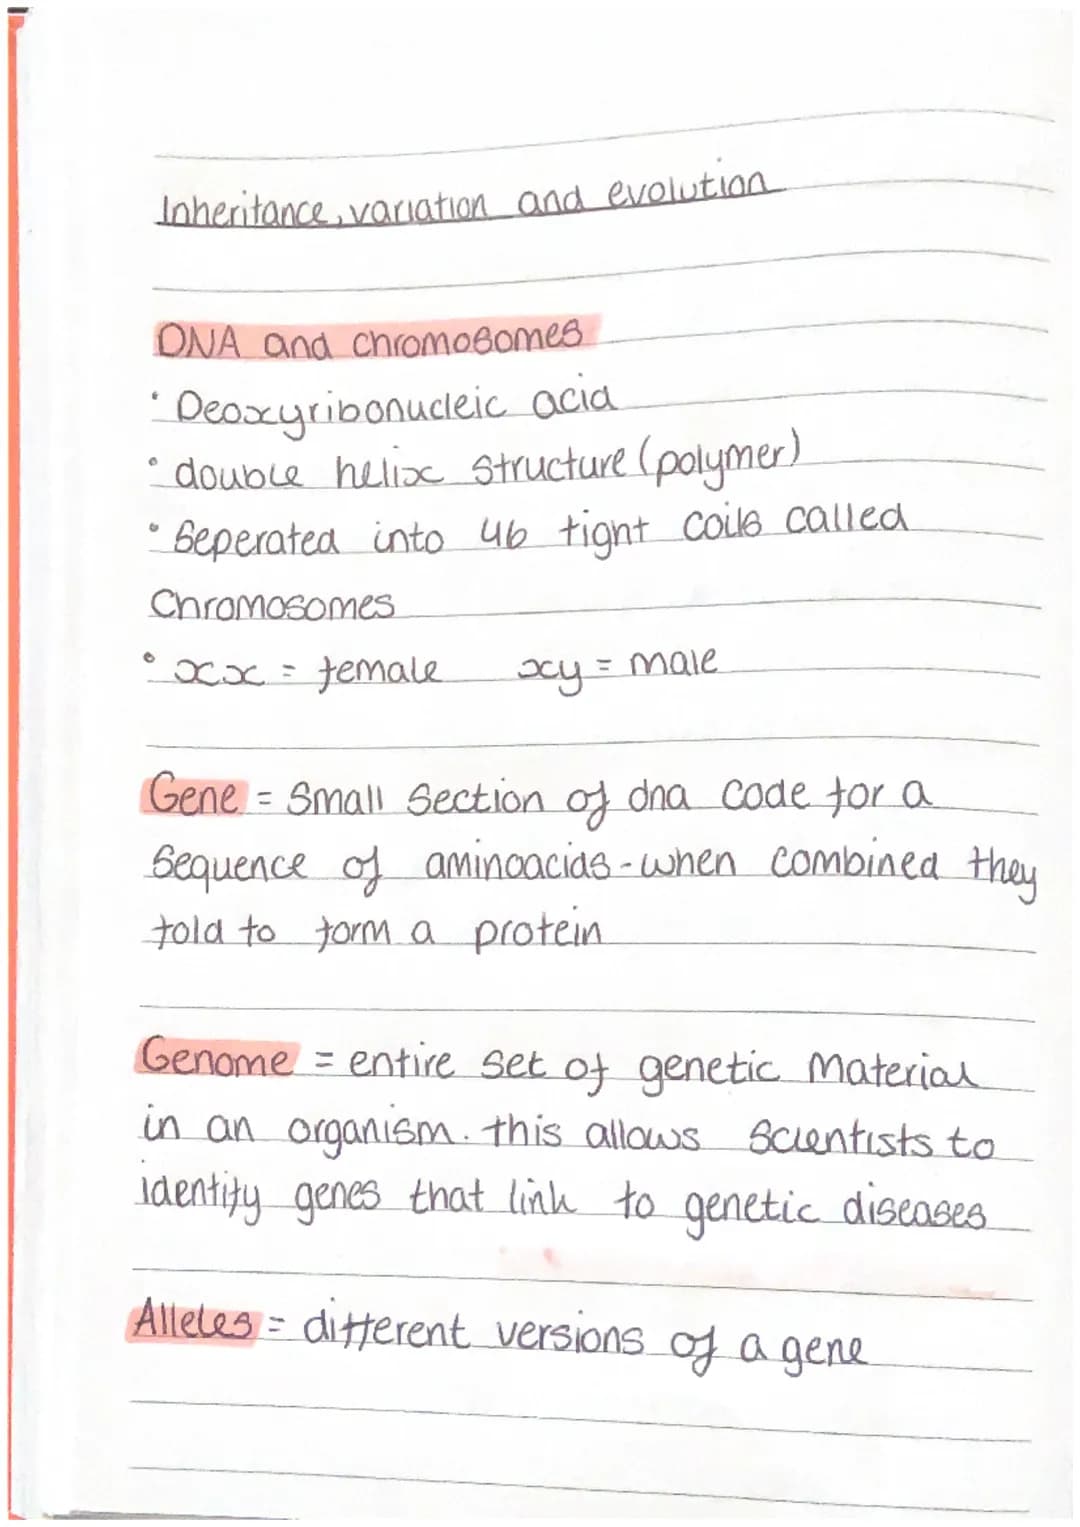 Inheritance, variation and evolution
DNA and chromosomes
• Deoxyribonucleic acid
• double helix structure (polymer)
• Seperated into 46 tight coils called
Chromosomes
• xx = female xy = male
Gene = Small Section of dna code for a
Sequence of aminoacids - when combined they
fold to form a protein
Genome = entire set of genetic Material
in an organism. this allows Scientists to
identify genes that link to genetic diseases
Alleles = different versions of a gene